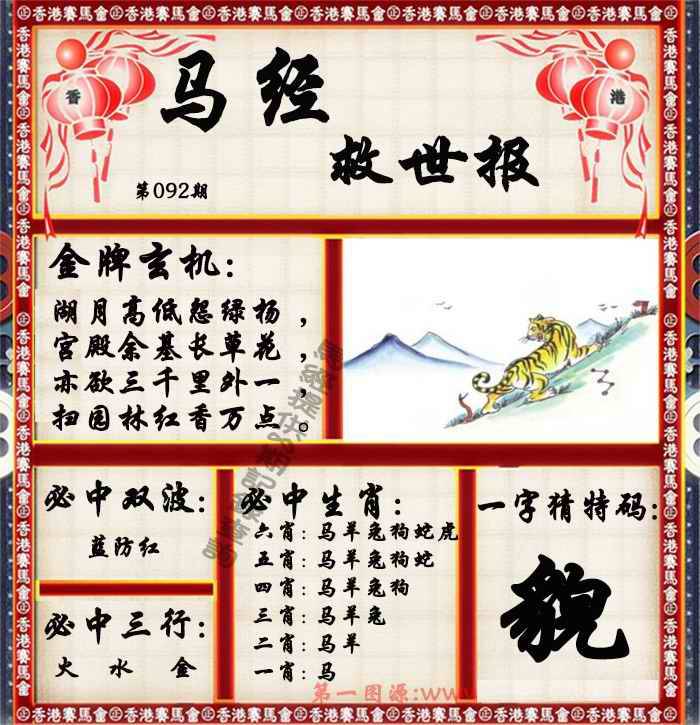 香港賽馬會
香 港
马经
救世报
第092期
金牌玄机:
湖月高低怨绿杨，
宫殿余基长草花，
亦欲三千里外一，
扫园林红香万点。
必中双波:
蓝防红
必中三行:
火 水 金
必中生肖:
六肖:马羊兔狗蛇虎
五肖:马羊兔狗蛇
四肖:马羊兔狗
三肖:马羊兔
二肖:马羊
一肖:马
一字猜特码:
貌
第一图源:www